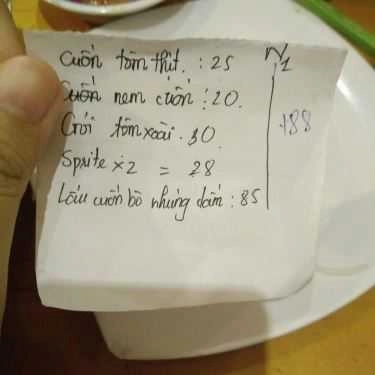 Cuốn tôm thịt. : 25
Cuốn nem cuốn : 20.
Gỏi tôm xoài. 30
Sprite x 2 = 28
Lẩu cuốn bò nhúng dấm : 85
N1
188